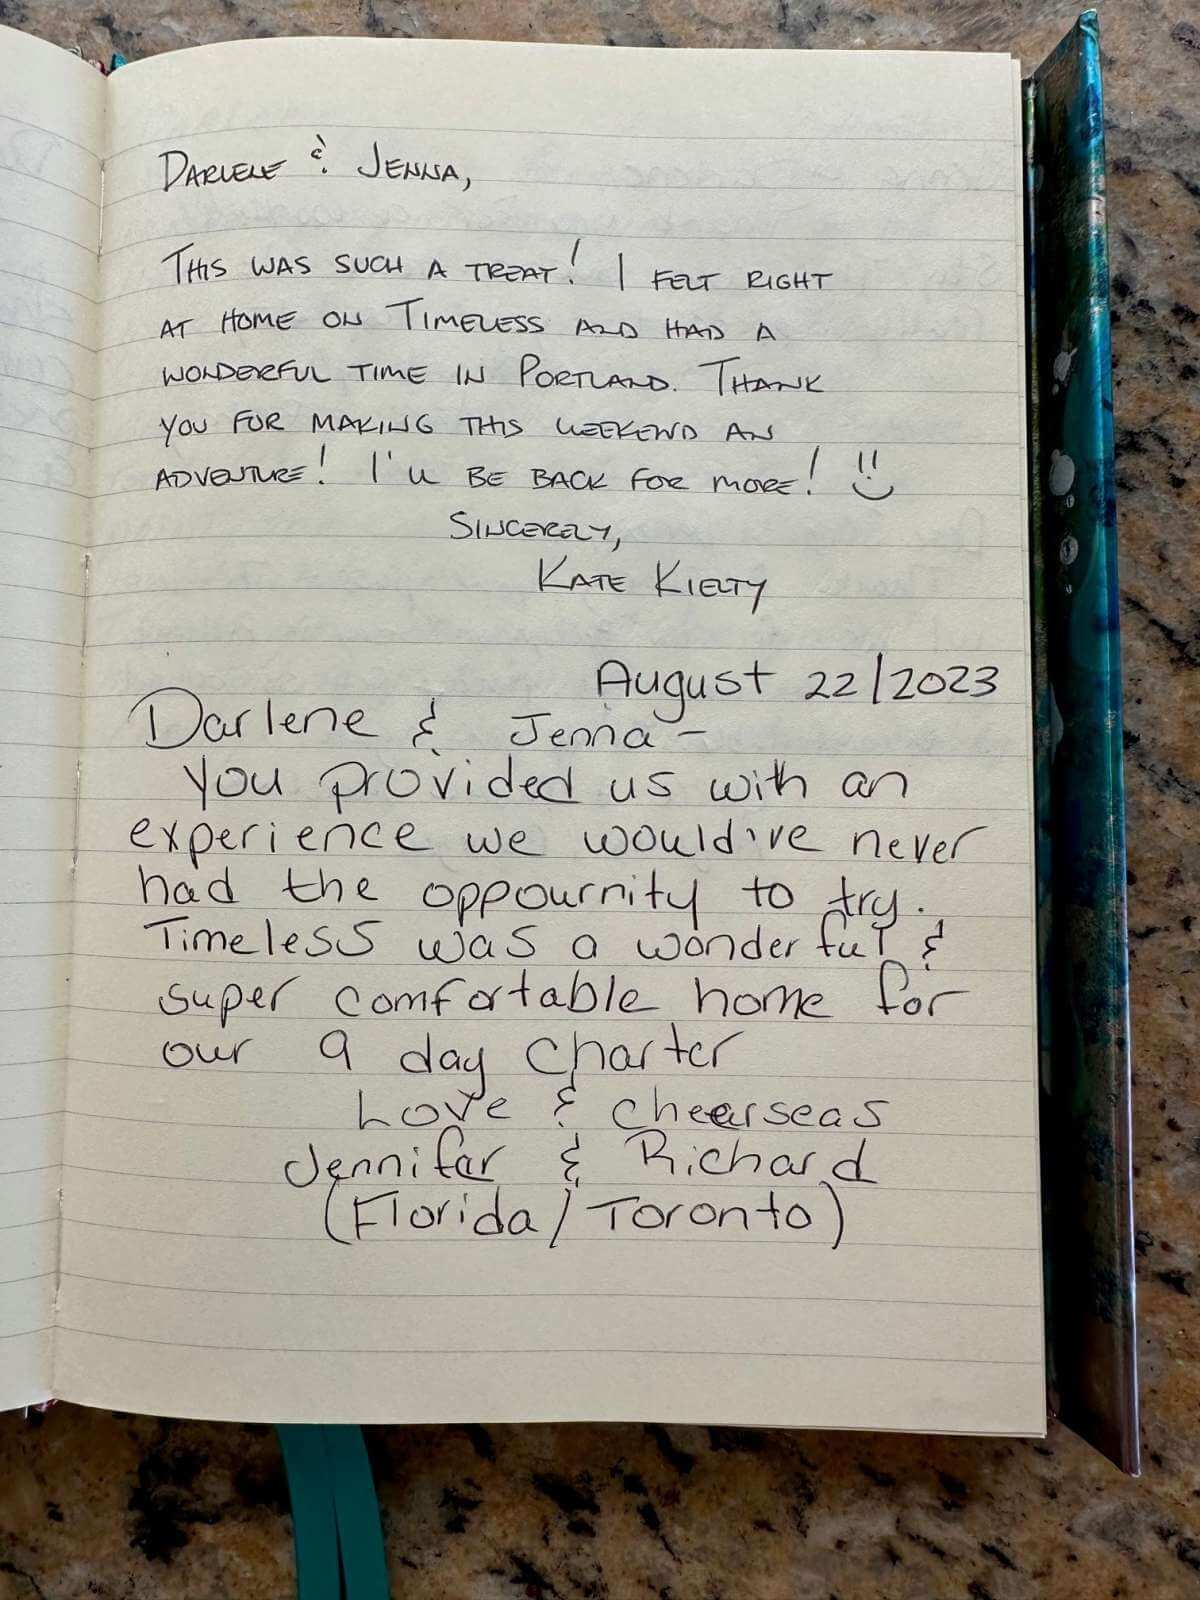 DARLENE & JENNA,
THIS WAS SUCH A TREAT! I FELT RIGHT
AT HOME ON TIMELESS AND HAD A
WONDERFUL TIME IN PORTLAND. THANK
YOU FOR MAKING THIS WEEKEND AN
ADVENTURE! I'll BE BACK FOR MORE!
SINCERELY,
KATE KIELTY
August 22/2023
Darlene & Jenna -
You provided us with an
experience we would've never
had the oppournity to try.
Timeless was a wonderful &
super comfortable home for
our 9 day charter
Love & cheerseas
Jennifer & Richard
(Florida/Toronto)